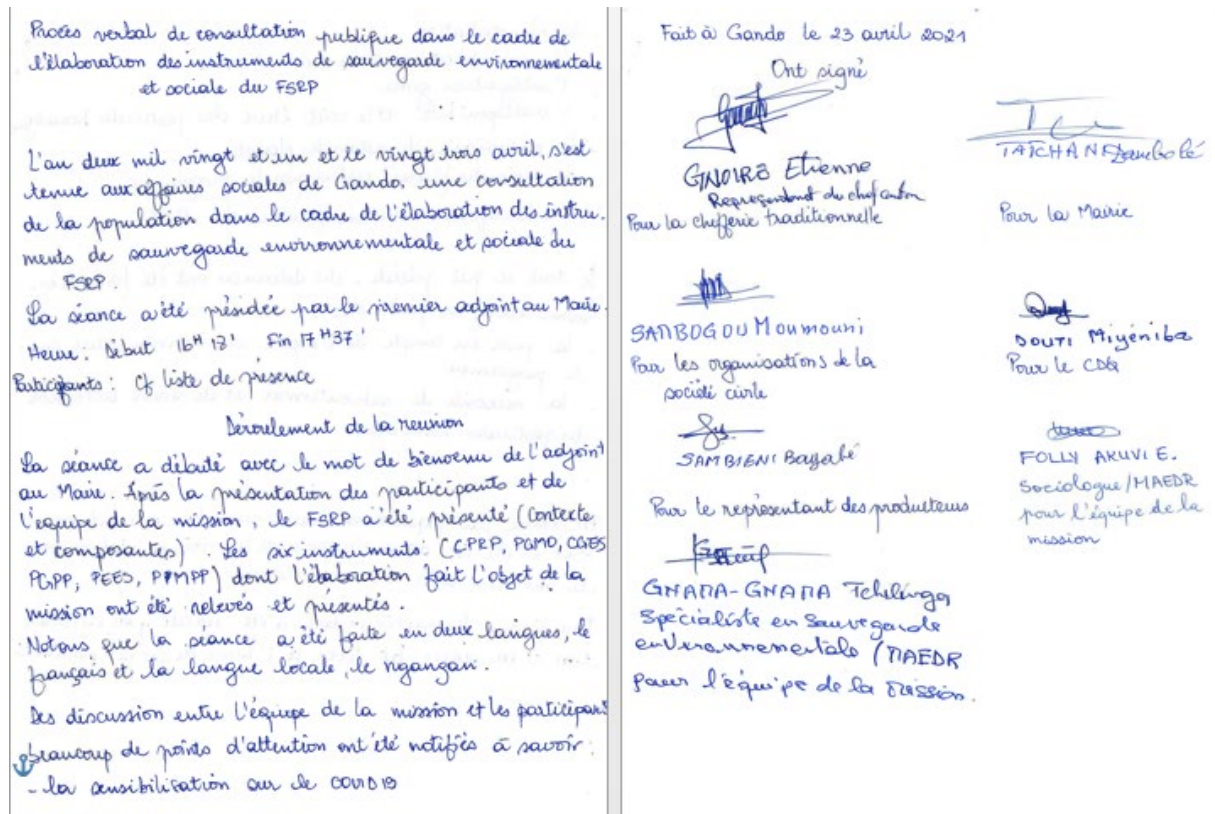 Procès verbal de consultation publique dans le cadre de
l'élaboration des instruments de sauvegarde environnementale
et sociale du FSRP
L'an deux mil vingt et un et le vingt trois avril, s'est
tenue aux affaires sociales de Gando, une consultation
de la population dans le cadre de l'élaboration des instru-
ments de sauvegarde environnementale et sociale du
FSRP.
La séance a été présidée par le premier adjoint au Maire.
Heure : Début 16H 13' Fin 17H37'
Participants : Cf liste de présence
Déroulement de la reunion
La séance a débuté avec le mot de bienvenu de l'adjoint
au Maire. Après la présentation des participants et de
l'equipe de la mission, le FSRP a été présenté (Contexte
et composantes). Les six instruments (CPRP, PGMO, CGES
PGPP, PEES, PPMPP) dont l'élaboration fait l'objet de la
mission ont été relevés et présentés.
Notons que la séance a été faite en deux langues, le
français et la langue locale, le ngangan.
Des discussion entre l'équipe de la mission et les participants
beaucoup de points d'attention ont été notifiés à savoir :
- la sensibilisation sur le COVID19
Fait à Gando le 23 avril 2021
Ont signé
GNOIRE Etienne
Representant du chef canton
Pour la chefferie traditionnelle
TATCHANE Dambolé
Pour la Mairie
SAMBOGOU Moumouni
Pour les organisations de la
société civile
DOUTI Miyéniba
Pour le CDQ
SAMBIENI Bagabé
Pour le représentant des producteurs
FOLLY AKUVI E.
Sociologue/MAEDR
pour l'équipe de la
mission
GNAMA-GNAMA Tchelinga
Spécialiste en Sauvegarde
environnementale (MAEDR
pour l'équipe de la mission.